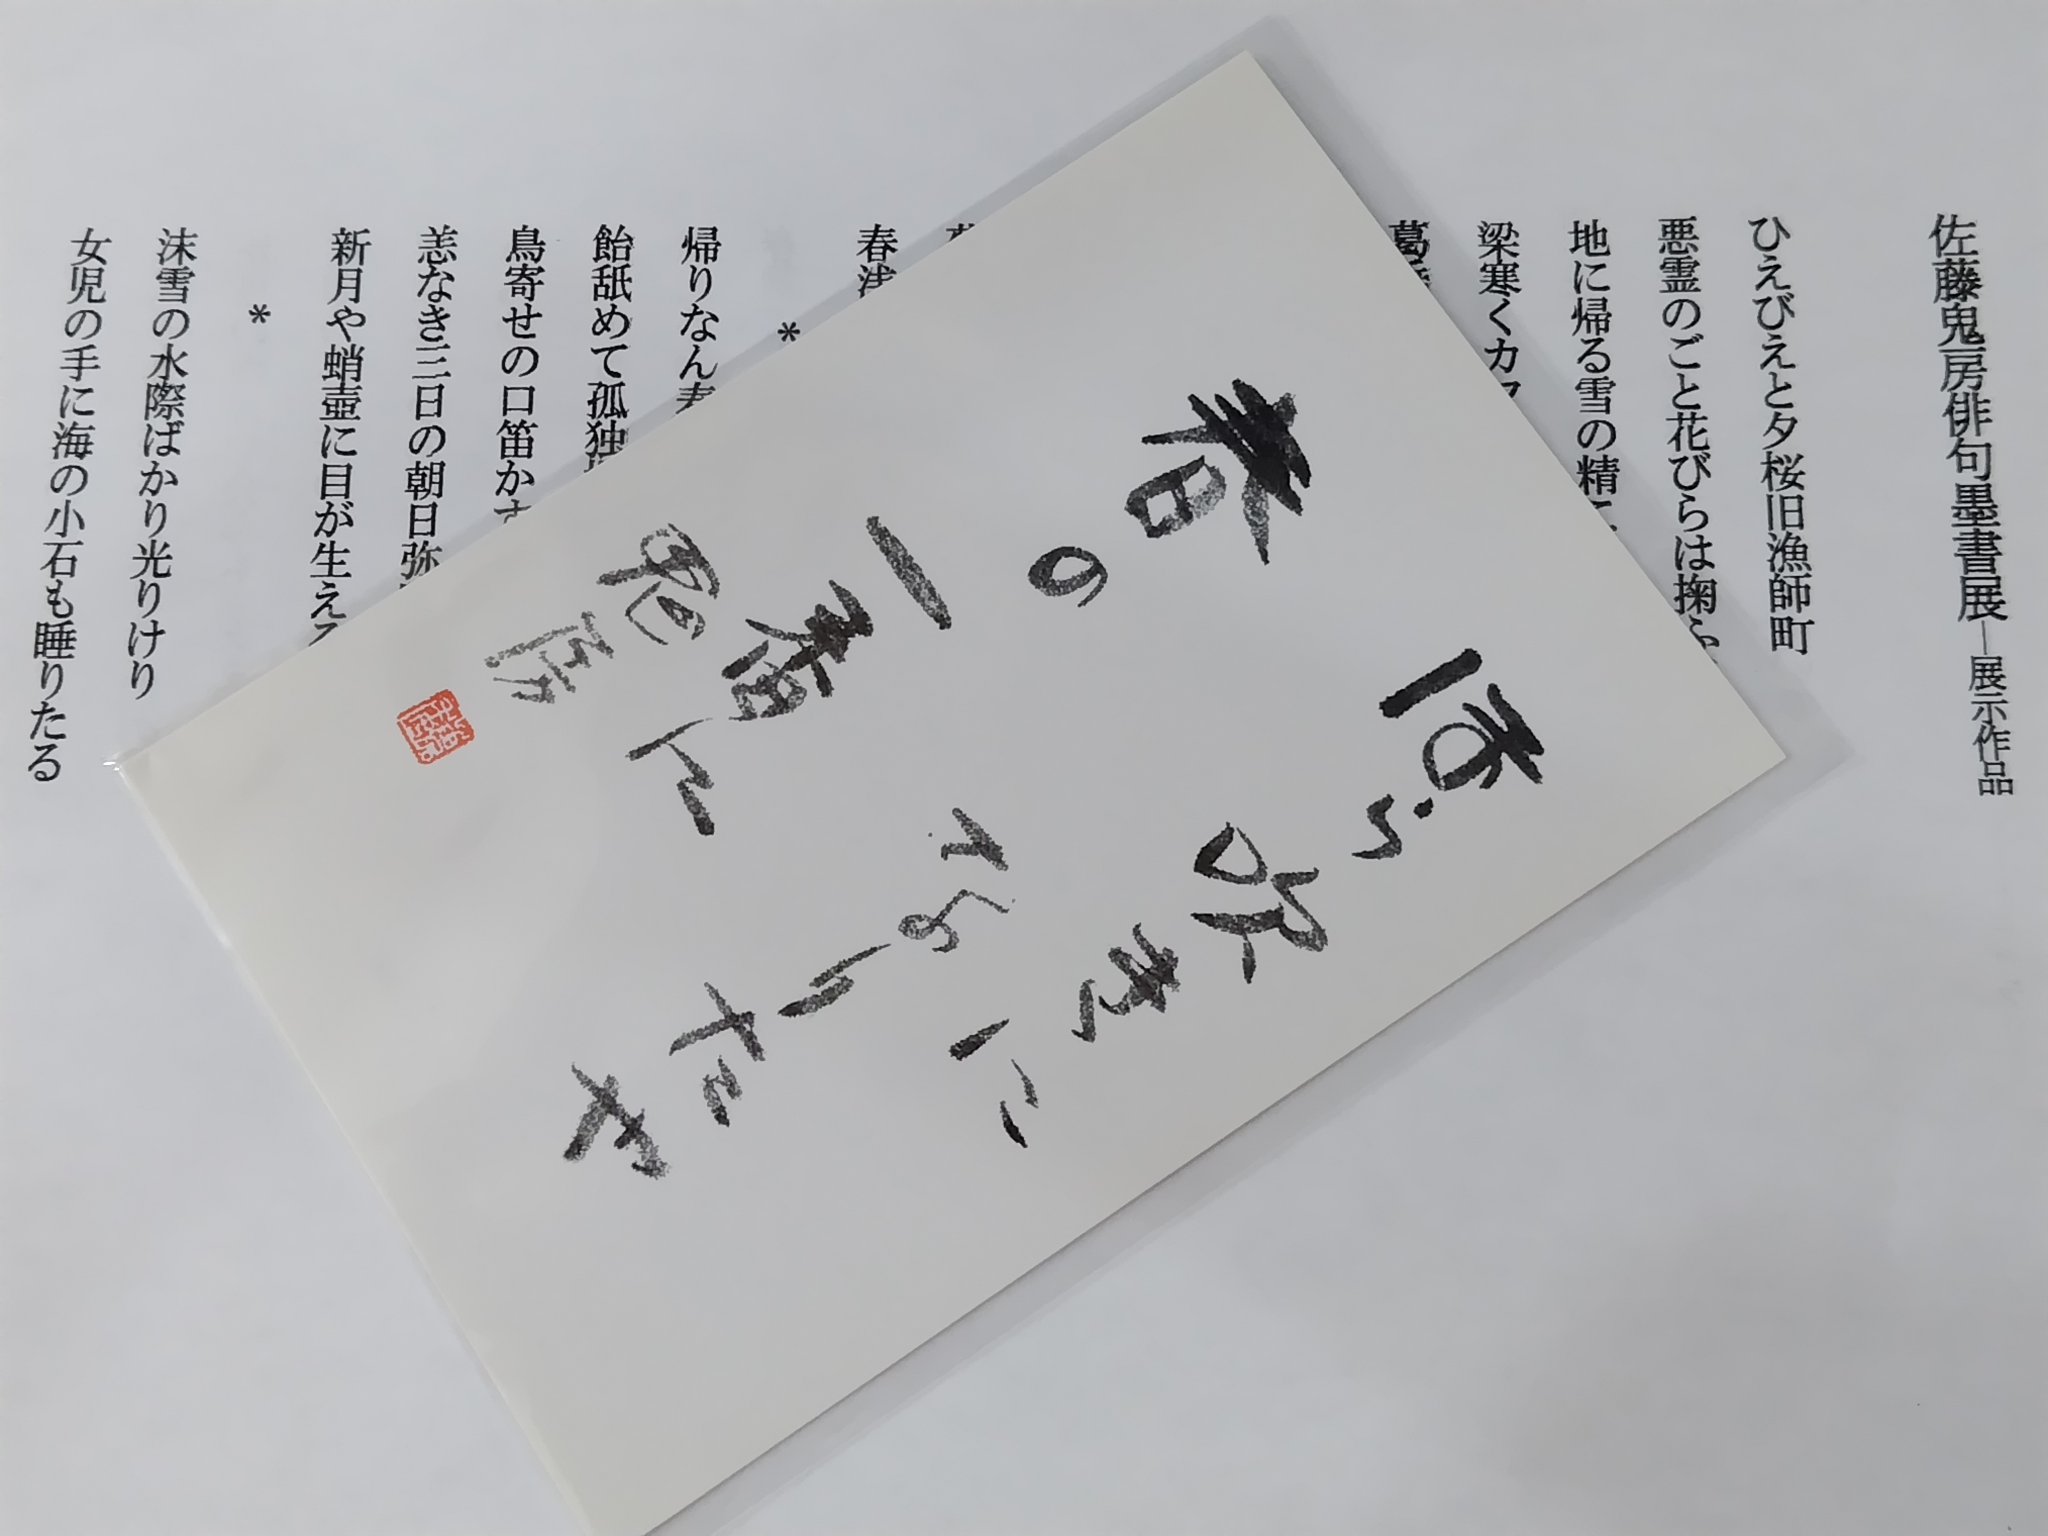 佐藤鬼房俳句墨書展―展示作品
ひえびえと夕桜旧漁師町
悪霊のごと花びらは掬ふ
地に帰る雪の精に
梁寒く
葛
春浅
*
帰りなん春
飴舐めて孤独
鳥寄せの口笛かす
恙なき三日の朝日弥
新月や蛸壺に目が生える
*
沫雪の水際ばかり光りけり
女児の手に海の小石も睡りたる
ほら吹きに
春の
一番に
鬼房